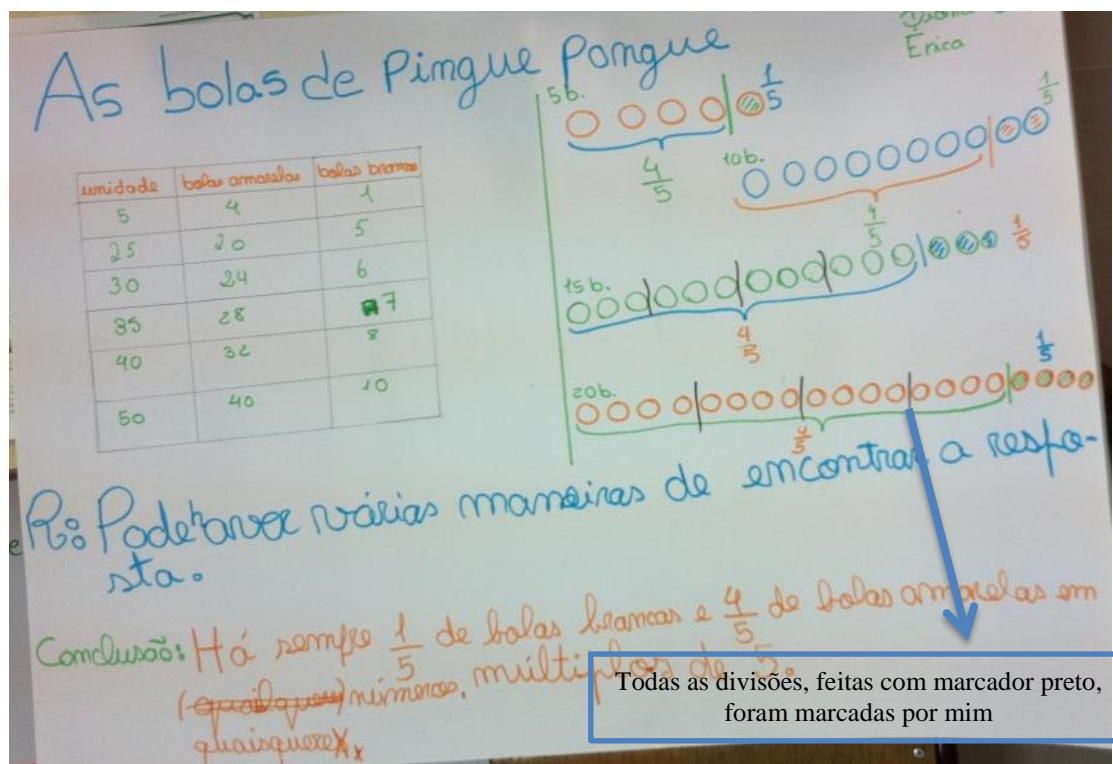 As bolas de Pingue Pongue
Érica
unidade bolas amarelas bolas brancas
5 4 1
25 20 5
30 24 6
35 28 7
40 32 8
50 40 10
5b.
1/5
4/5
10b.
1/5
4/5
15b.
1/5
4/5
20b.
1/5
4/5
R: Pode haver várias maneiras de encontrar a respo-
sta.
Conclusão: Há sempre 1/5 de bolas brancas e 4/5 de bolas amarelas em
(qualquer) números, múltiplos de 5.
quaisquer
Todas as divisões, feitas com marcador preto,
foram marcadas por mim